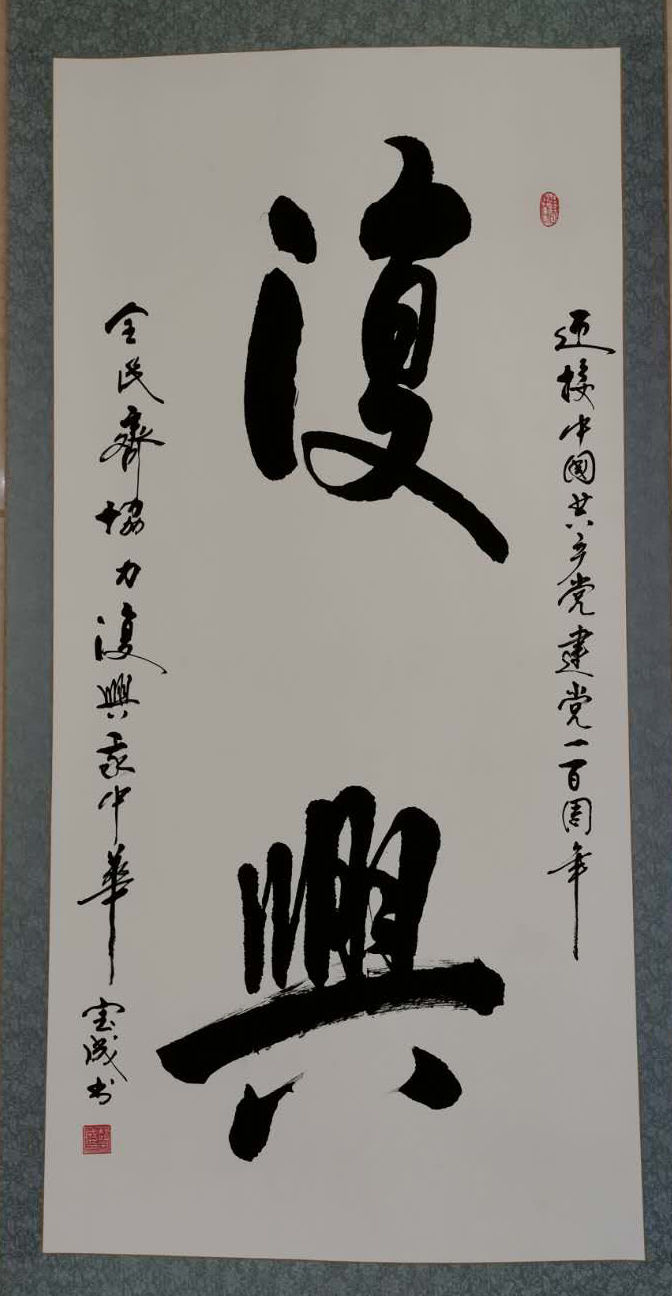 迎接中国共产党建党一百周年
復興
全民齊協力復興我中華
宝成书